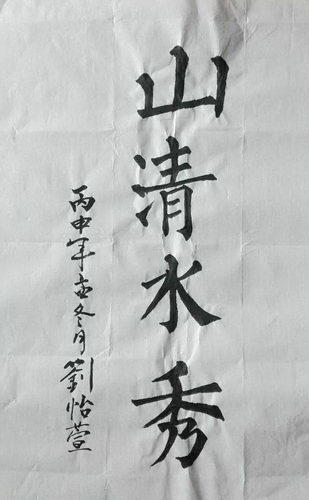 山清水秀
丙申年孟冬月劉怡萱